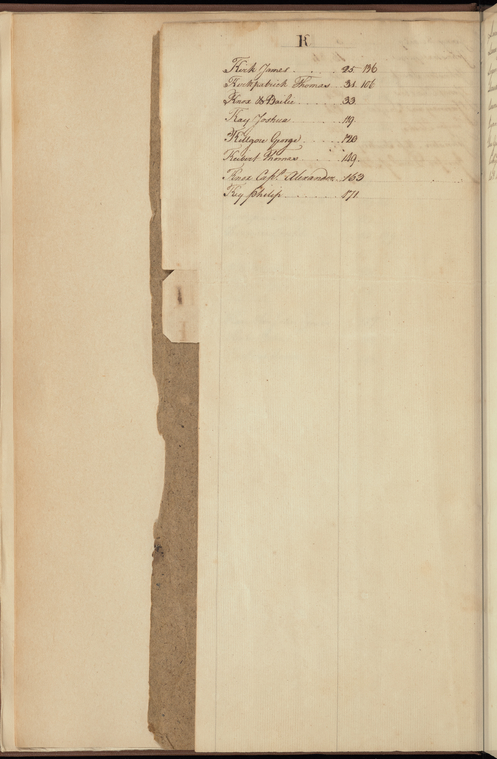 K
Kirk James 25 136
Kirkpatrick Thomas 31. 106
Knox & Bailie 33
Kay Joshua 119
Killgore George 120
Thomas 149
Knox Capt. Alexander 163
Key Philip 171